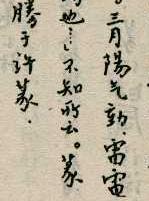 。三月陽气動、雷電
也…不知所云。蒙
勝于許篆.